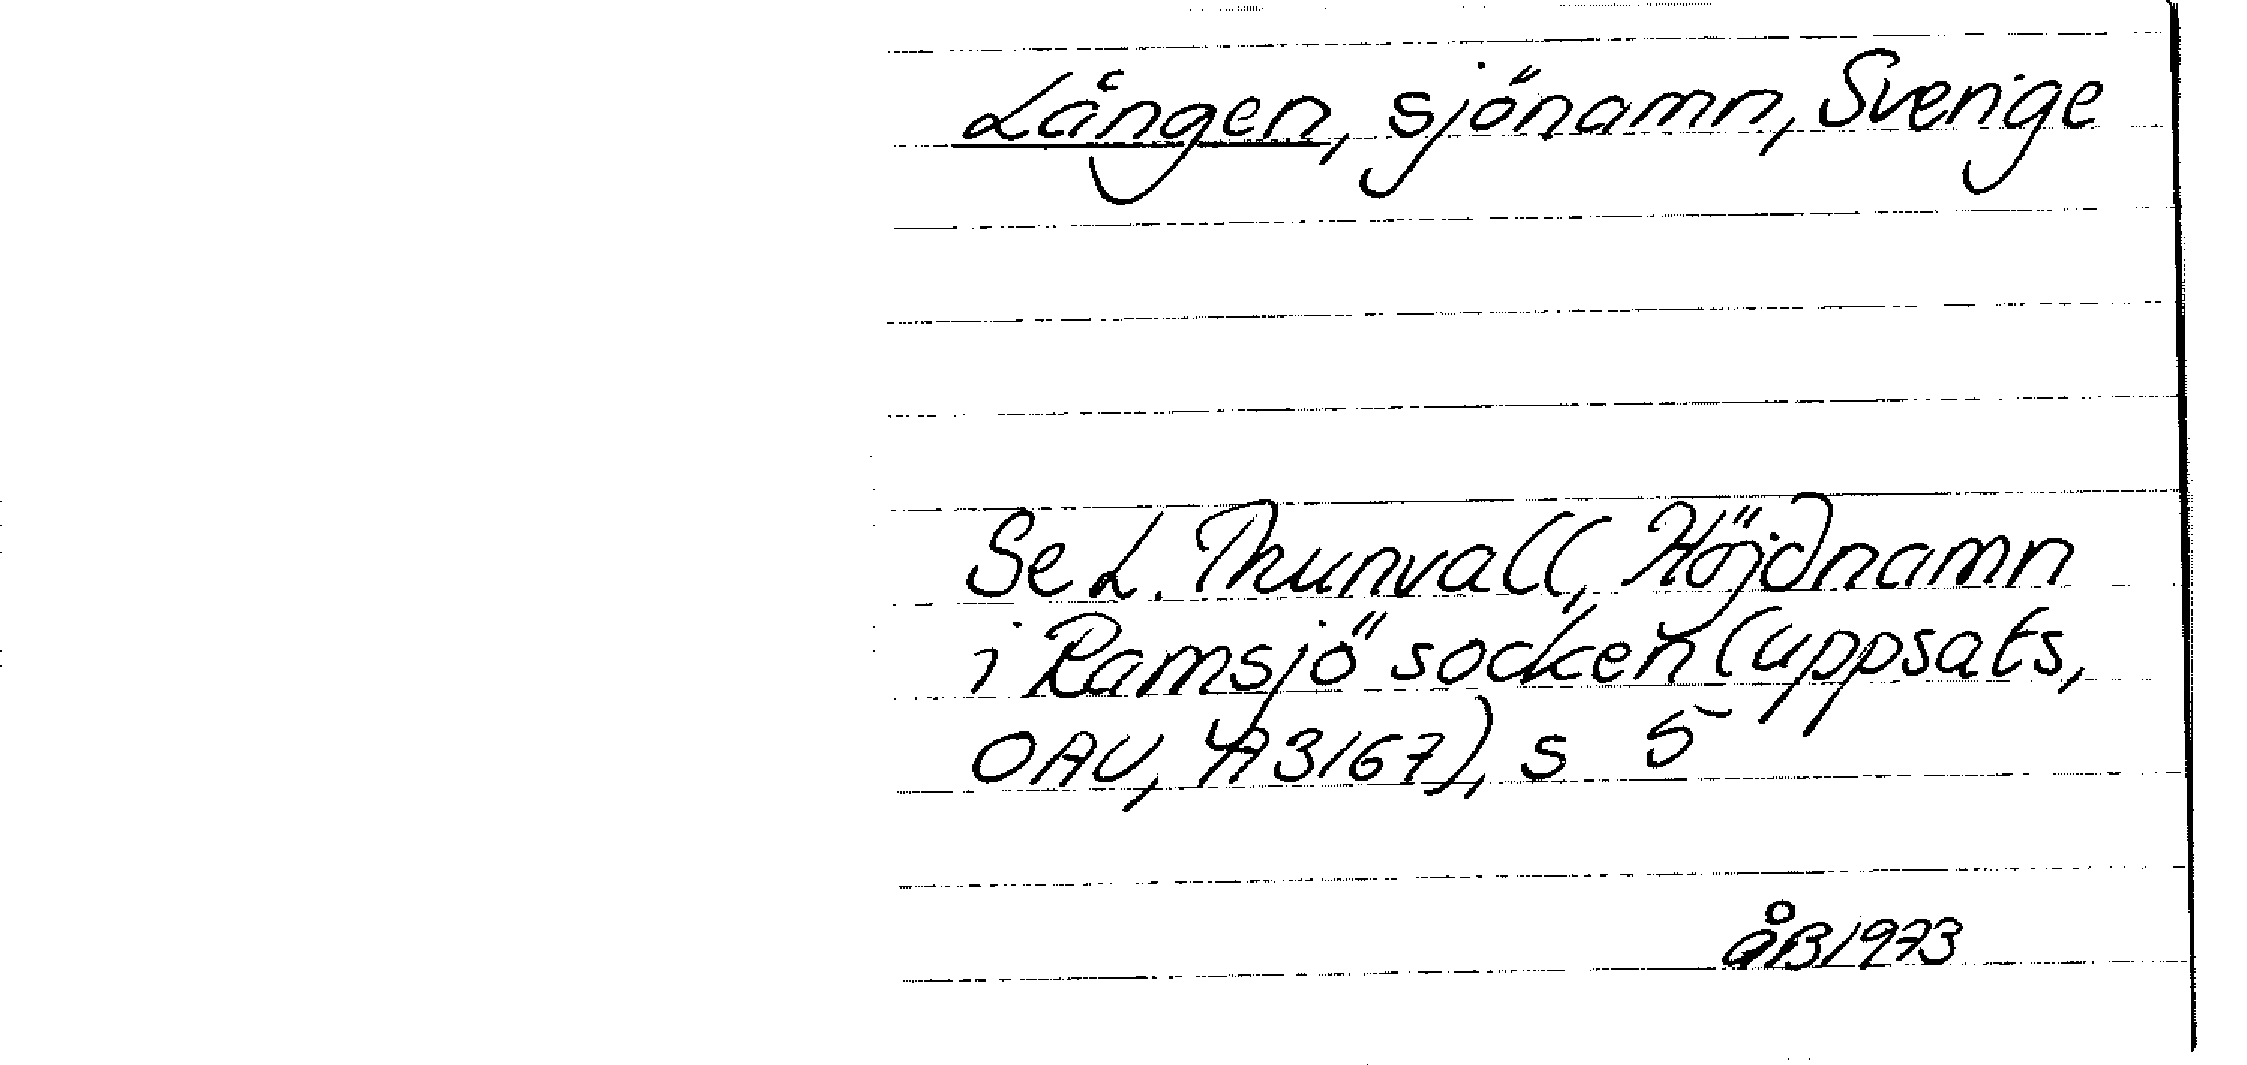 Lången, sjönamn, Sverige
Se L. Thunvall, Höjdnamn
i Ramsjö socken (uppsats,
OAU, A3167), s 5
åB 1973